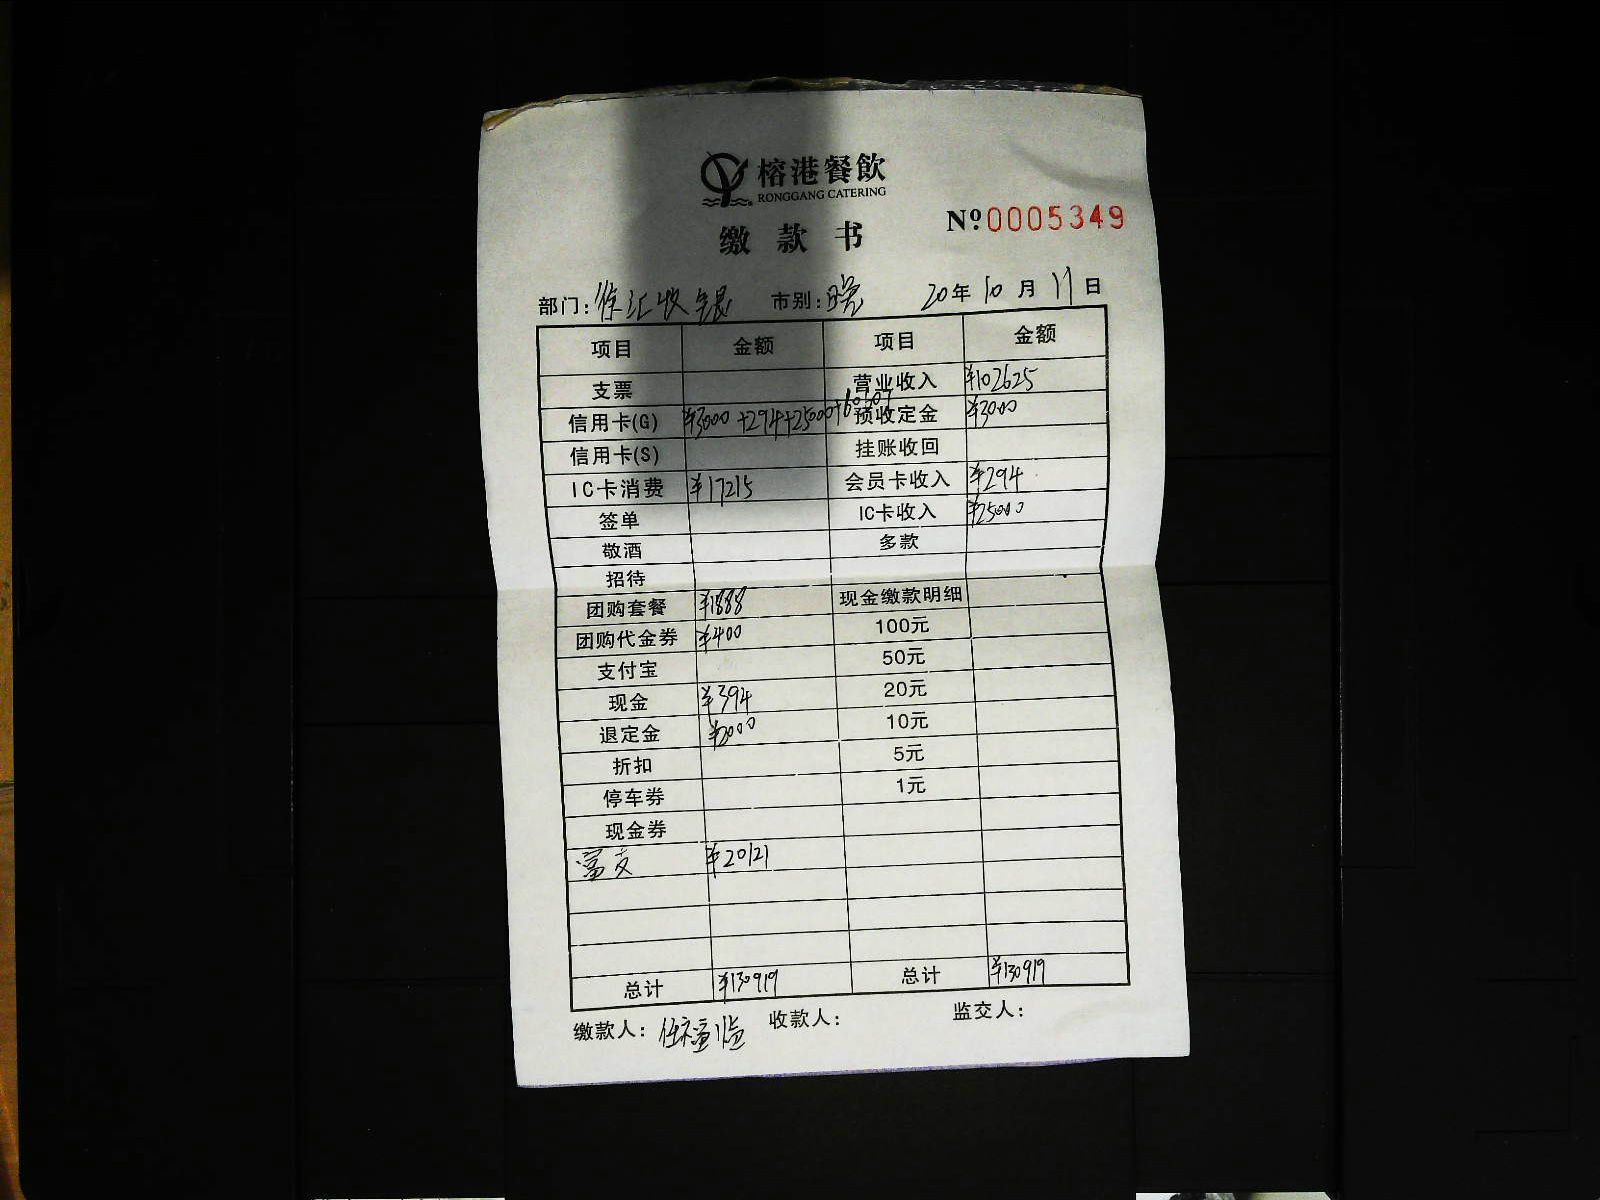 榕港餐飲
RONGGANG CATERING
缴款书 №0005349
部门: 徐汇收银 市别: 晚 20年10月11日
项目 金额 项目 金额
支票 营业收入 ¥102625
信用卡(G) ¥3000+294+25000+60607 预收定金 ¥3000
信用卡(S) 挂账收回
IC卡消费 ¥17215 会员卡收入 ¥294
签单 IC卡收入 ¥25000
敬酒 多款
招待
团购套餐 ¥1888 现金缴款明细
团购代金券 ¥400 100元
支付宝 50元
现金 ¥394 20元
退定金 ¥2000 10元
折扣 5元
停车券 1元
现金券
富友 ¥20121
总计 ¥130919 总计 ¥130919
缴款人: 收款人: 监交人: